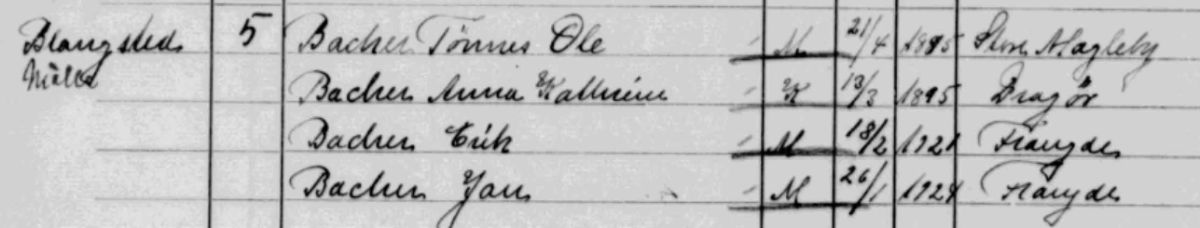 Blangsted 5 Bacher Tönnes Ole M 21/4 1895 Store Magleby
Mölle Bacher Anna Kathrine K 13/3 1895 Dragör
Bacher Erik M 18/2 1921
Bacher Jan M 26/1 1924